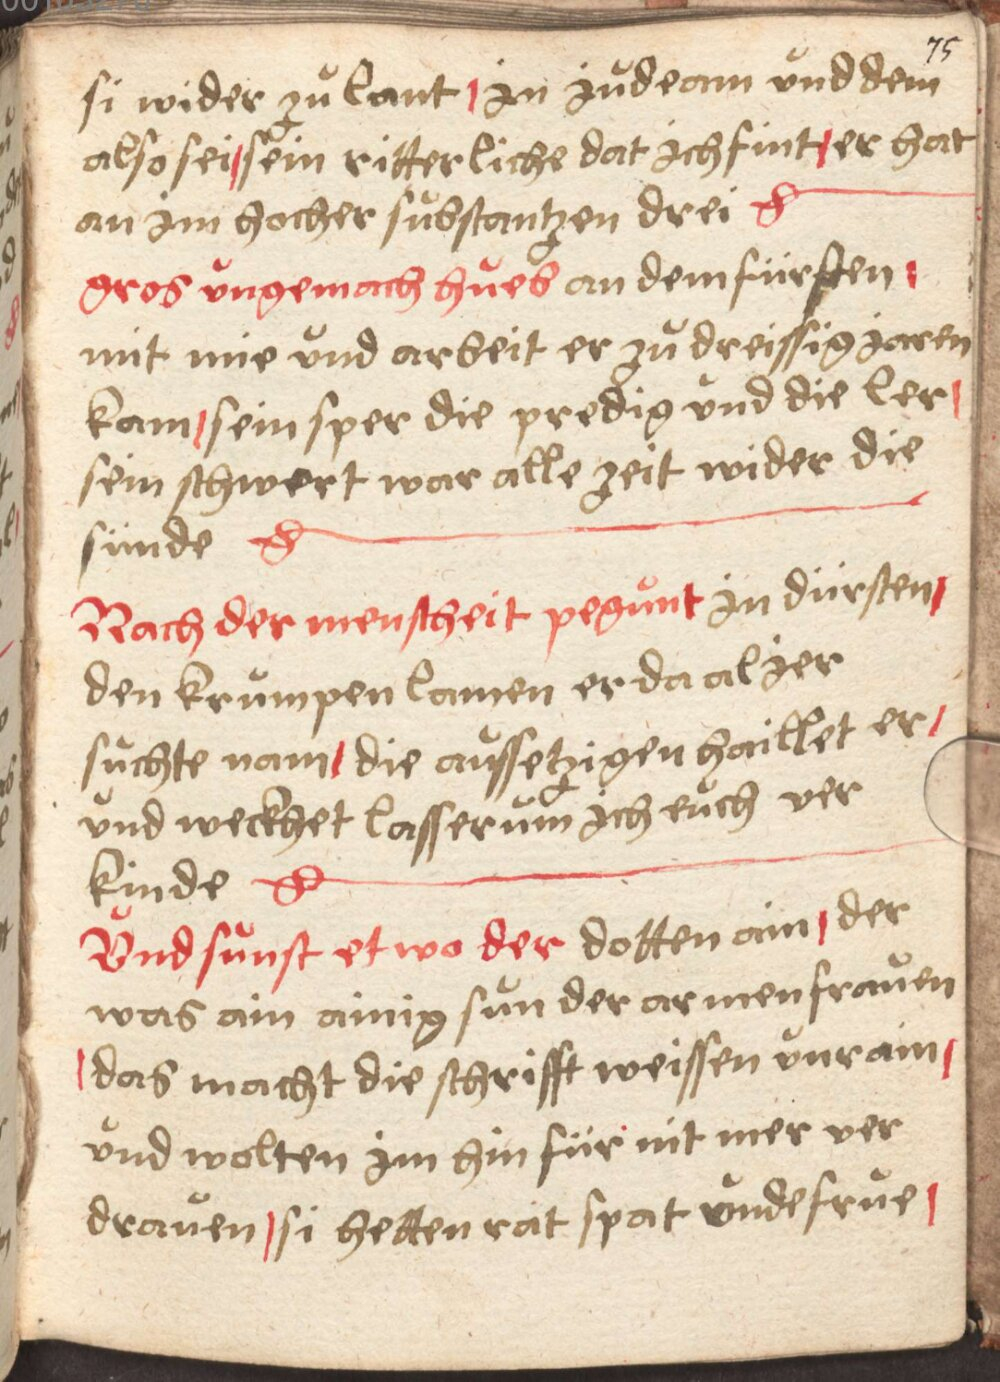 75
si wider zu lant / in judeam und dem
also sei / sein ritterliche dat ich fint / er hat
an im hocher substantzen drei
gros ungemach hueb an dem fürsten /
mit mie und arbeit er zu dreissig jaren
kam / sein sper die predig und die ler /
sein schwert war alle zeit wider die
sünde
Nach der menscheit pegunt in dürsten /
den krumpen lamen er da al jer
suchte nam / die aussetzigen haillet er /
und weckhet lasserum ich euch ver
kinde
Und sunst etwo der dotten ain / der
was ain ainig sun der armen frauen
/ das macht die schrifft weissen unrain /
und wolten im hin für nit mer ver
drauen / si hetten rat spat unde frue /